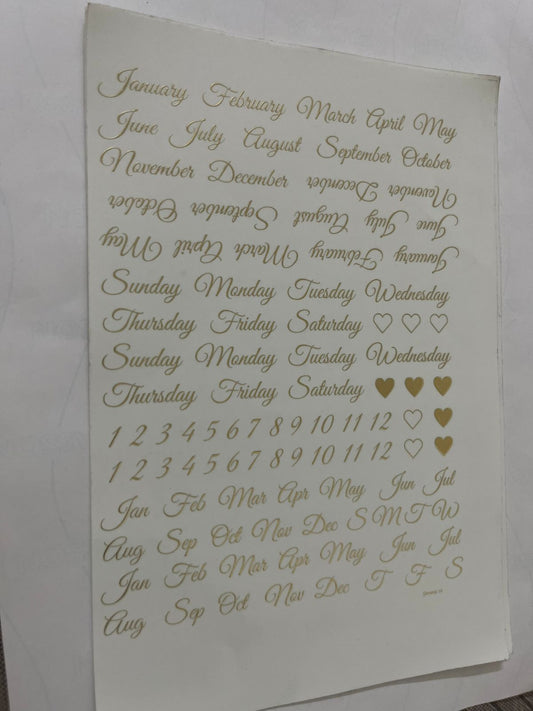 January February March April May
June July August September October
November December
January February March April May
June July August September October
November December
Sunday Monday Tuesday Wednesday
Thursday Friday Saturday
Sunday Monday Tuesday Wednesday
Thursday Friday Saturday
1 2 3 4 5 6 7 8 9 10 11 12
1 2 3 4 5 6 7 8 9 10 11 12
Jan Feb Mar Apr May Jun Jul
Aug Sep Oct Nov Dec S M T W
Jan Feb Mar Apr May Jun Jul
Aug Sep Oct Nov Dec T F S